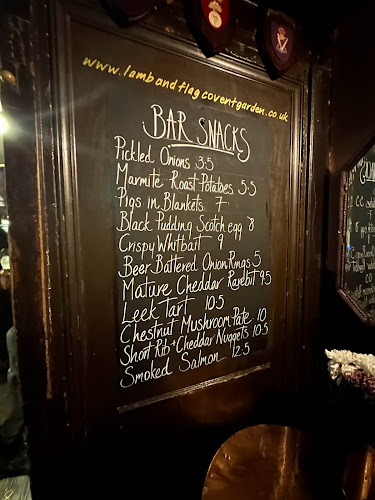 www.lambandflagcoventgarden.co.uk
BAR SNACKS
Pickled Onions 3.5
Marmite Roast Potatoes 5.5
Pigs in Blankets 7
Black Pudding Scotch egg 8
Crispy Whitbait 9
Beer Battered Onion Rings 5
Mature Cheddar Rarebit 9.5
Leek Tart 10.5
Chestnut Mushroom Pate 10
Short Rib + Cheddar Nuggets 10.5
Smoked Salmon 12.5